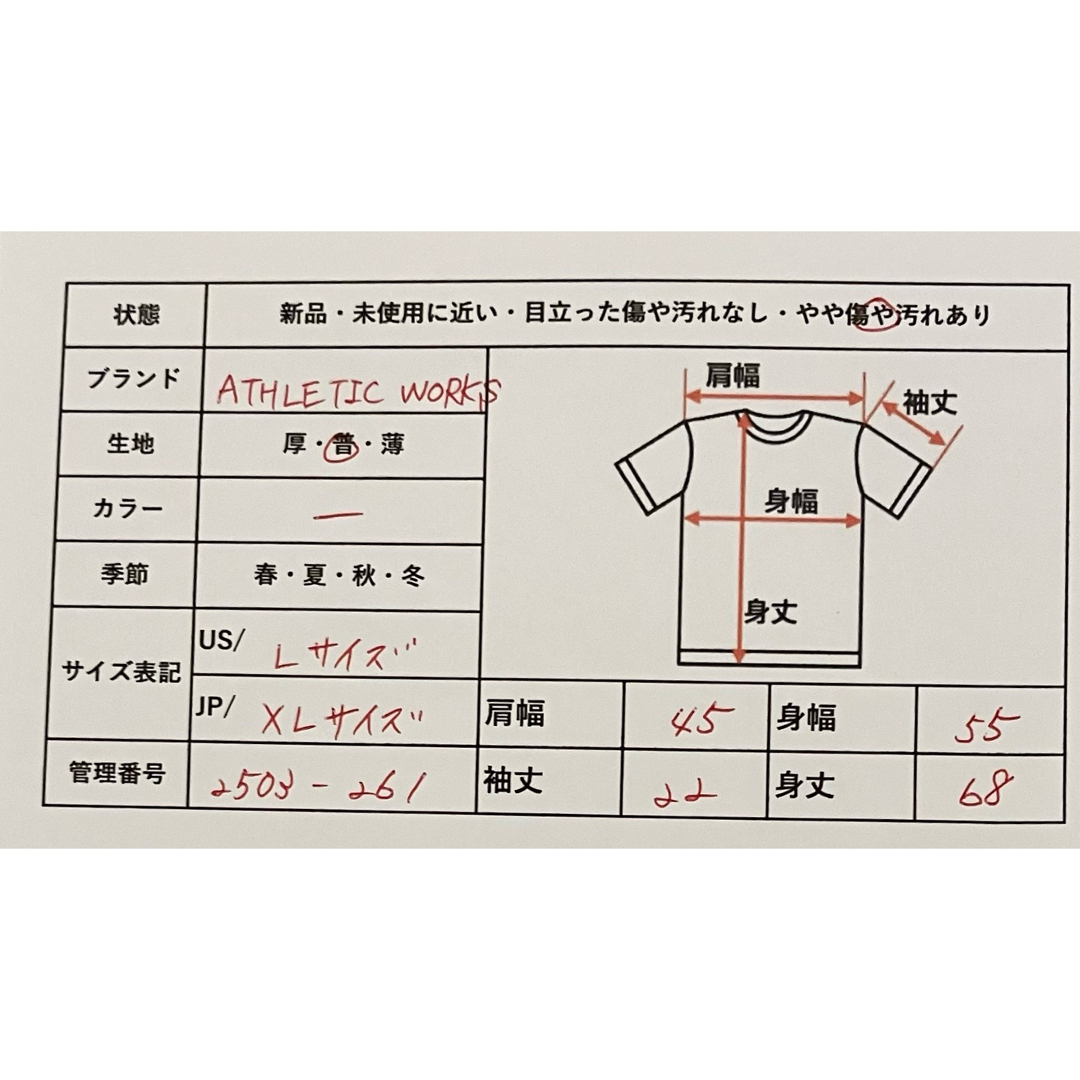 状態 新品・未使用に近い・目立った傷や汚れなし・やや傷や汚れあり
ブランド ATHLETIC WORKS
生地 厚・普・薄
カラー ー
季節 春・夏・秋・冬
サイズ表記 US/ Lサイズ
JP/ XLサイズ
管理番号 2503-261
肩幅
袖丈
身幅
身丈
肩幅 45 身幅 55
袖丈 22 身丈 68